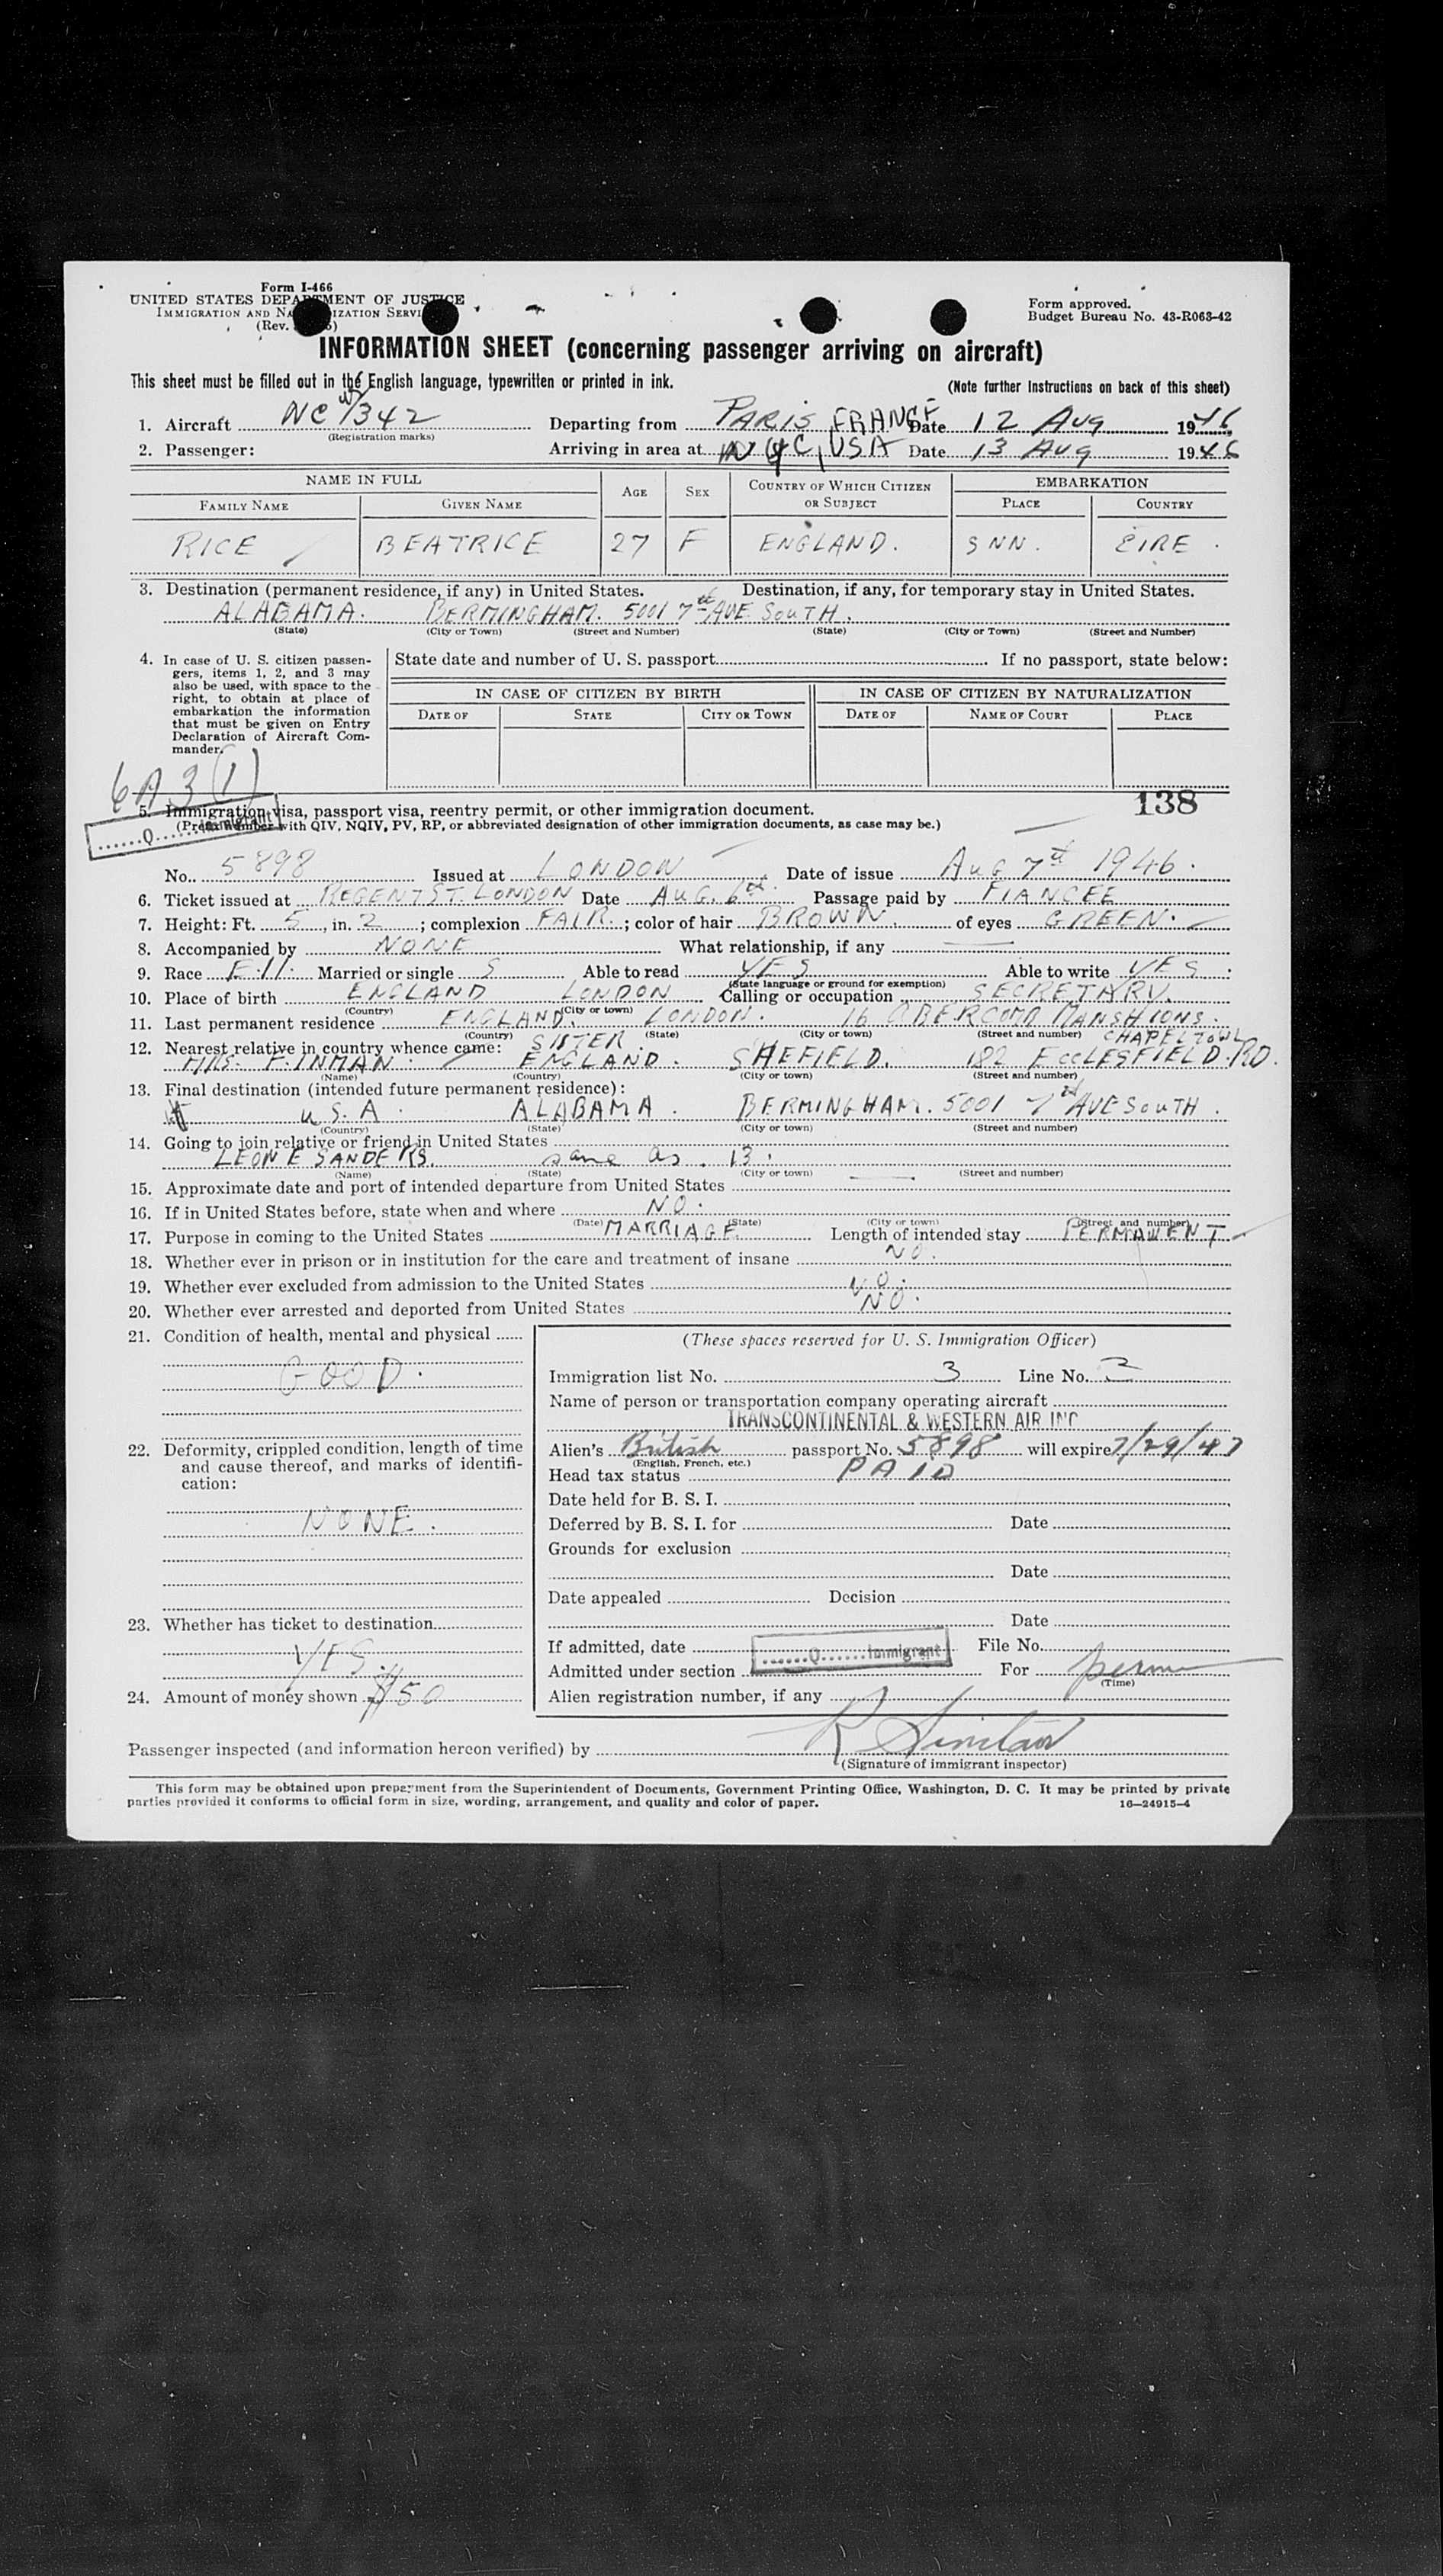 Form I-466
UNITED STATES DEPARTMENT OF JUSTICE
IMMIGRATION AND NA IZATION SERVI
(Rev. )
Form approved.
Budget Bureau No. 43-R063-42
INFORMATION SHEET (concerning passenger arriving on aircraft)
This sheet must be filled out in the English language, typewritten or printed in ink.
(Note further Instructions on back of this sheet)
1. Aircraft NC 1342 Departing from PARIS, FRANCE Date 12 Aug 1946
(Registration marks)
2. Passenger: Arriving in area at NYC, USA Date 13 Aug 1946
NAME IN FULL AGE SEX COUNTRY OF WHICH CITIZEN OR SUBJECT EMBARKATION
FAMILY NAME GIVEN NAME PLACE COUNTRY
RICE BEATRICE 27 F ENGLAND. SNN. EIRE.
3. Destination (permanent residence, if any) in United States. Destination, if any, for temporary stay in United States.
ALABAMA. BERMINGHAM. 5001 7th AVE SOUTH.
(State) (City or Town) (Street and Number) (State) (City or Town) (Street and Number)
4. In case of U. S. citizen passengers, items 1, 2, and 3 may
also be used, with space to the
right, to obtain at place of
embarkation the information
that must be given on Entry
Declaration of Aircraft Commander.
State date and number of U. S. passport If no passport, state below:
IN CASE OF CITIZEN BY BIRTH IN CASE OF CITIZEN BY NATURALIZATION
DATE OF STATE CITY OR TOWN DATE OF NAME OF COURT PLACE
6A3(1)
138
5. Immigration visa, passport visa, reentry permit, or other immigration document.
(Prefix number with QIV, NQIV, PV, RP, or abbreviated designation of other immigration documents, as case may be.)
Q Immigrant
No. 5898 Issued at LONDON Date of issue Aug 7th 1946.
6. Ticket issued at REGENT ST. LONDON Date AUG. 6th. Passage paid by FIANCEE
7. Height: Ft. 5, in. 2; complexion FAIR.; color of hair BROWN. of eyes GREEN.
8. Accompanied by NONE What relationship, if any
9. Race Married or single S Able to read YES Able to write YES.
(State language or ground for exemption)
10. Place of birth ENGLAND LONDON Calling or occupation SECRETARY.
(Country) (City or town)
11. Last permanent residence ENGLAND. LONDON. 16 ABERCORN MANSHIONS.
(Country) (State) (City or town) (Street and number)
12. Nearest relative in country whence came: SISTER. CHAPELTOWN
MRS. F. INMAN. ENGLAND. SHEFIELD. 182 ECCLESFIELD. RD.
(Name) (Country) (City or town) (Street and number)
13. Final destination (intended future permanent residence):
U.S.A. ALABAMA. BERMINGHAM. 5001 7th AVE SOUTH.
(Country) (State) (City or town) (Street and number)
14. Going to join relative or friend in United States
LEON E SANDERS. same as. 13.
(Name) (State) (City or town) (Street and number)
15. Approximate date and port of intended departure from United States
16. If in United States before, state when and where NO.
(Date) (State) (City or town) (Street and number)
17. Purpose in coming to the United States MARRIAGE. Length of intended stay PERMANENT
18. Whether ever in prison or in institution for the care and treatment of insane NO.
19. Whether ever excluded from admission to the United States NO.
20. Whether ever arrested and deported from United States NO.
21. Condition of health, mental and physical
GOOD.
22. Deformity, crippled condition, length of time
and cause thereof, and marks of identification:
NONE.
23. Whether has ticket to destination
YES.
24. Amount of money shown $50
(These spaces reserved for U. S. Immigration Officer)
Immigration list No. 3 Line No. 2
Name of person or transportation company operating aircraft
TRANSCONTINENTAL & WESTERN AIR INC
Alien's British passport No. 5898 will expire 7/29/47
(English, French, etc.)
Head tax status PAID
Date held for B. S. I.
Deferred by B. S. I. for Date
Grounds for exclusion
Date
Date appealed Decision
Date
If admitted, date Q Immigrant File No.
Admitted under section For perm
(Time)
Alien registration number, if any
Passenger inspected (and information hereon verified) by R Sinclair
(Signature of immigrant inspector)
This form may be obtained upon prepayment from the Superintendent of Documents, Government Printing Office, Washington, D. C. It may be printed by private
parties provided it conforms to official form in size, wording, arrangement, and quality and color of paper. 16—24915-4